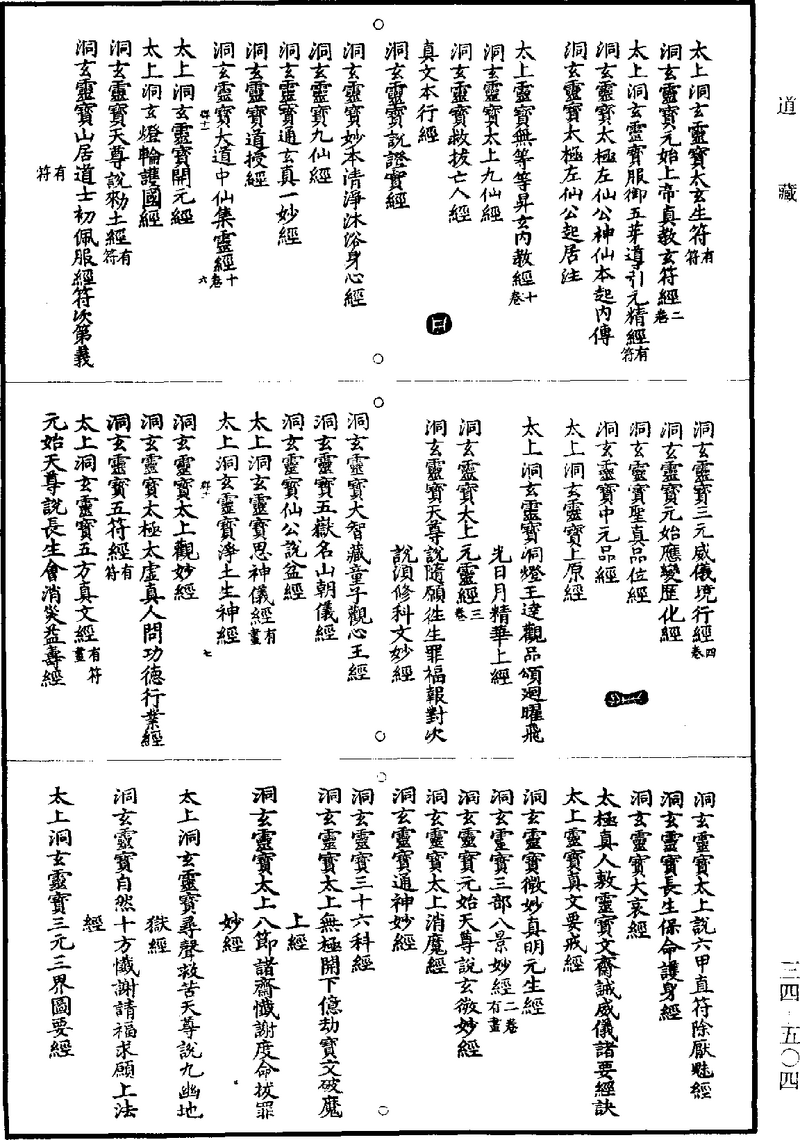 道藏
太上洞玄靈寶太玄生符有符
洞玄靈寶元始上帝真教玄符經二卷
太上洞玄靈寶服御五芽導引元精經有符
洞玄靈寶太極左仙公神仙本起內傳
洞玄靈寶太極左仙公起居注
太上靈寶無等等昇玄內教經十卷
洞玄靈寶太上九仙經
洞玄靈寶救拔亡人經
真文本行經
洞玄靈寶說證實經
洞玄靈寶妙本清淨沐浴身心經
洞玄靈寶九仙經
洞玄靈寶通玄真一妙經
洞玄靈寶道授經
洞玄靈寶大道中仙集靈經十卷
六
太上洞玄靈寶開元經
太上洞玄燈輪護國經
洞玄靈寶天尊說勑土經有符
洞玄靈寶山居道士初佩服經符次第義
有符
洞玄靈寶三元威儀境行經四卷
洞玄靈寶元始應變歷化經
洞玄靈寶聖真品位經
洞玄靈寶中元品經
太上洞玄靈寶上原經
太上洞玄靈寶洞燈王達觀品頌迴曜飛
光日月精華上經
洞玄靈寶大上元靈經三卷
洞玄靈寶天尊說隨願往生罪福報對次
說湏修科文妙經
洞玄靈寶大智藏童子觀心王經
洞玄靈寶五嶽名山朝儀經
洞玄靈寶仙公說盆經
太上洞玄靈寶思神儀經有畫
太上洞玄靈寶淨土生神經
七
洞玄靈寶太上觀妙經
洞玄靈寶太極太虛真人問功德行業經
洞玄靈寶五符經有符
太上洞玄靈寶五方真文經有符畫
元始天尊說長生會消災益壽經
洞玄靈寶太上說六甲直符除厭魅經
洞玄靈寶長生保命護身經
洞玄靈寶大哀經
太極真人敷靈寶文齋誡威儀諸要經訣
太上靈寶真文要戒經
洞玄靈寶微妙真明元生經
洞玄靈寶三部八景妙經二卷有畫
洞玄靈寶元始天尊說玄微妙經
洞玄靈寶太上消魔經
洞玄靈寶通神妙經
洞玄靈寶三十六科經
洞玄靈寶太上無極開下億劫寶文破魔
上經
洞玄靈寶太上八節諸齋懺謝度命拔罪
妙經
太上洞玄靈寶尋聲救苦天尊說九幽地
獄經
洞玄靈寶自然十方懺謝請福求願上法
經
太上洞玄靈寶三元三界圖要經
三四·五〇四